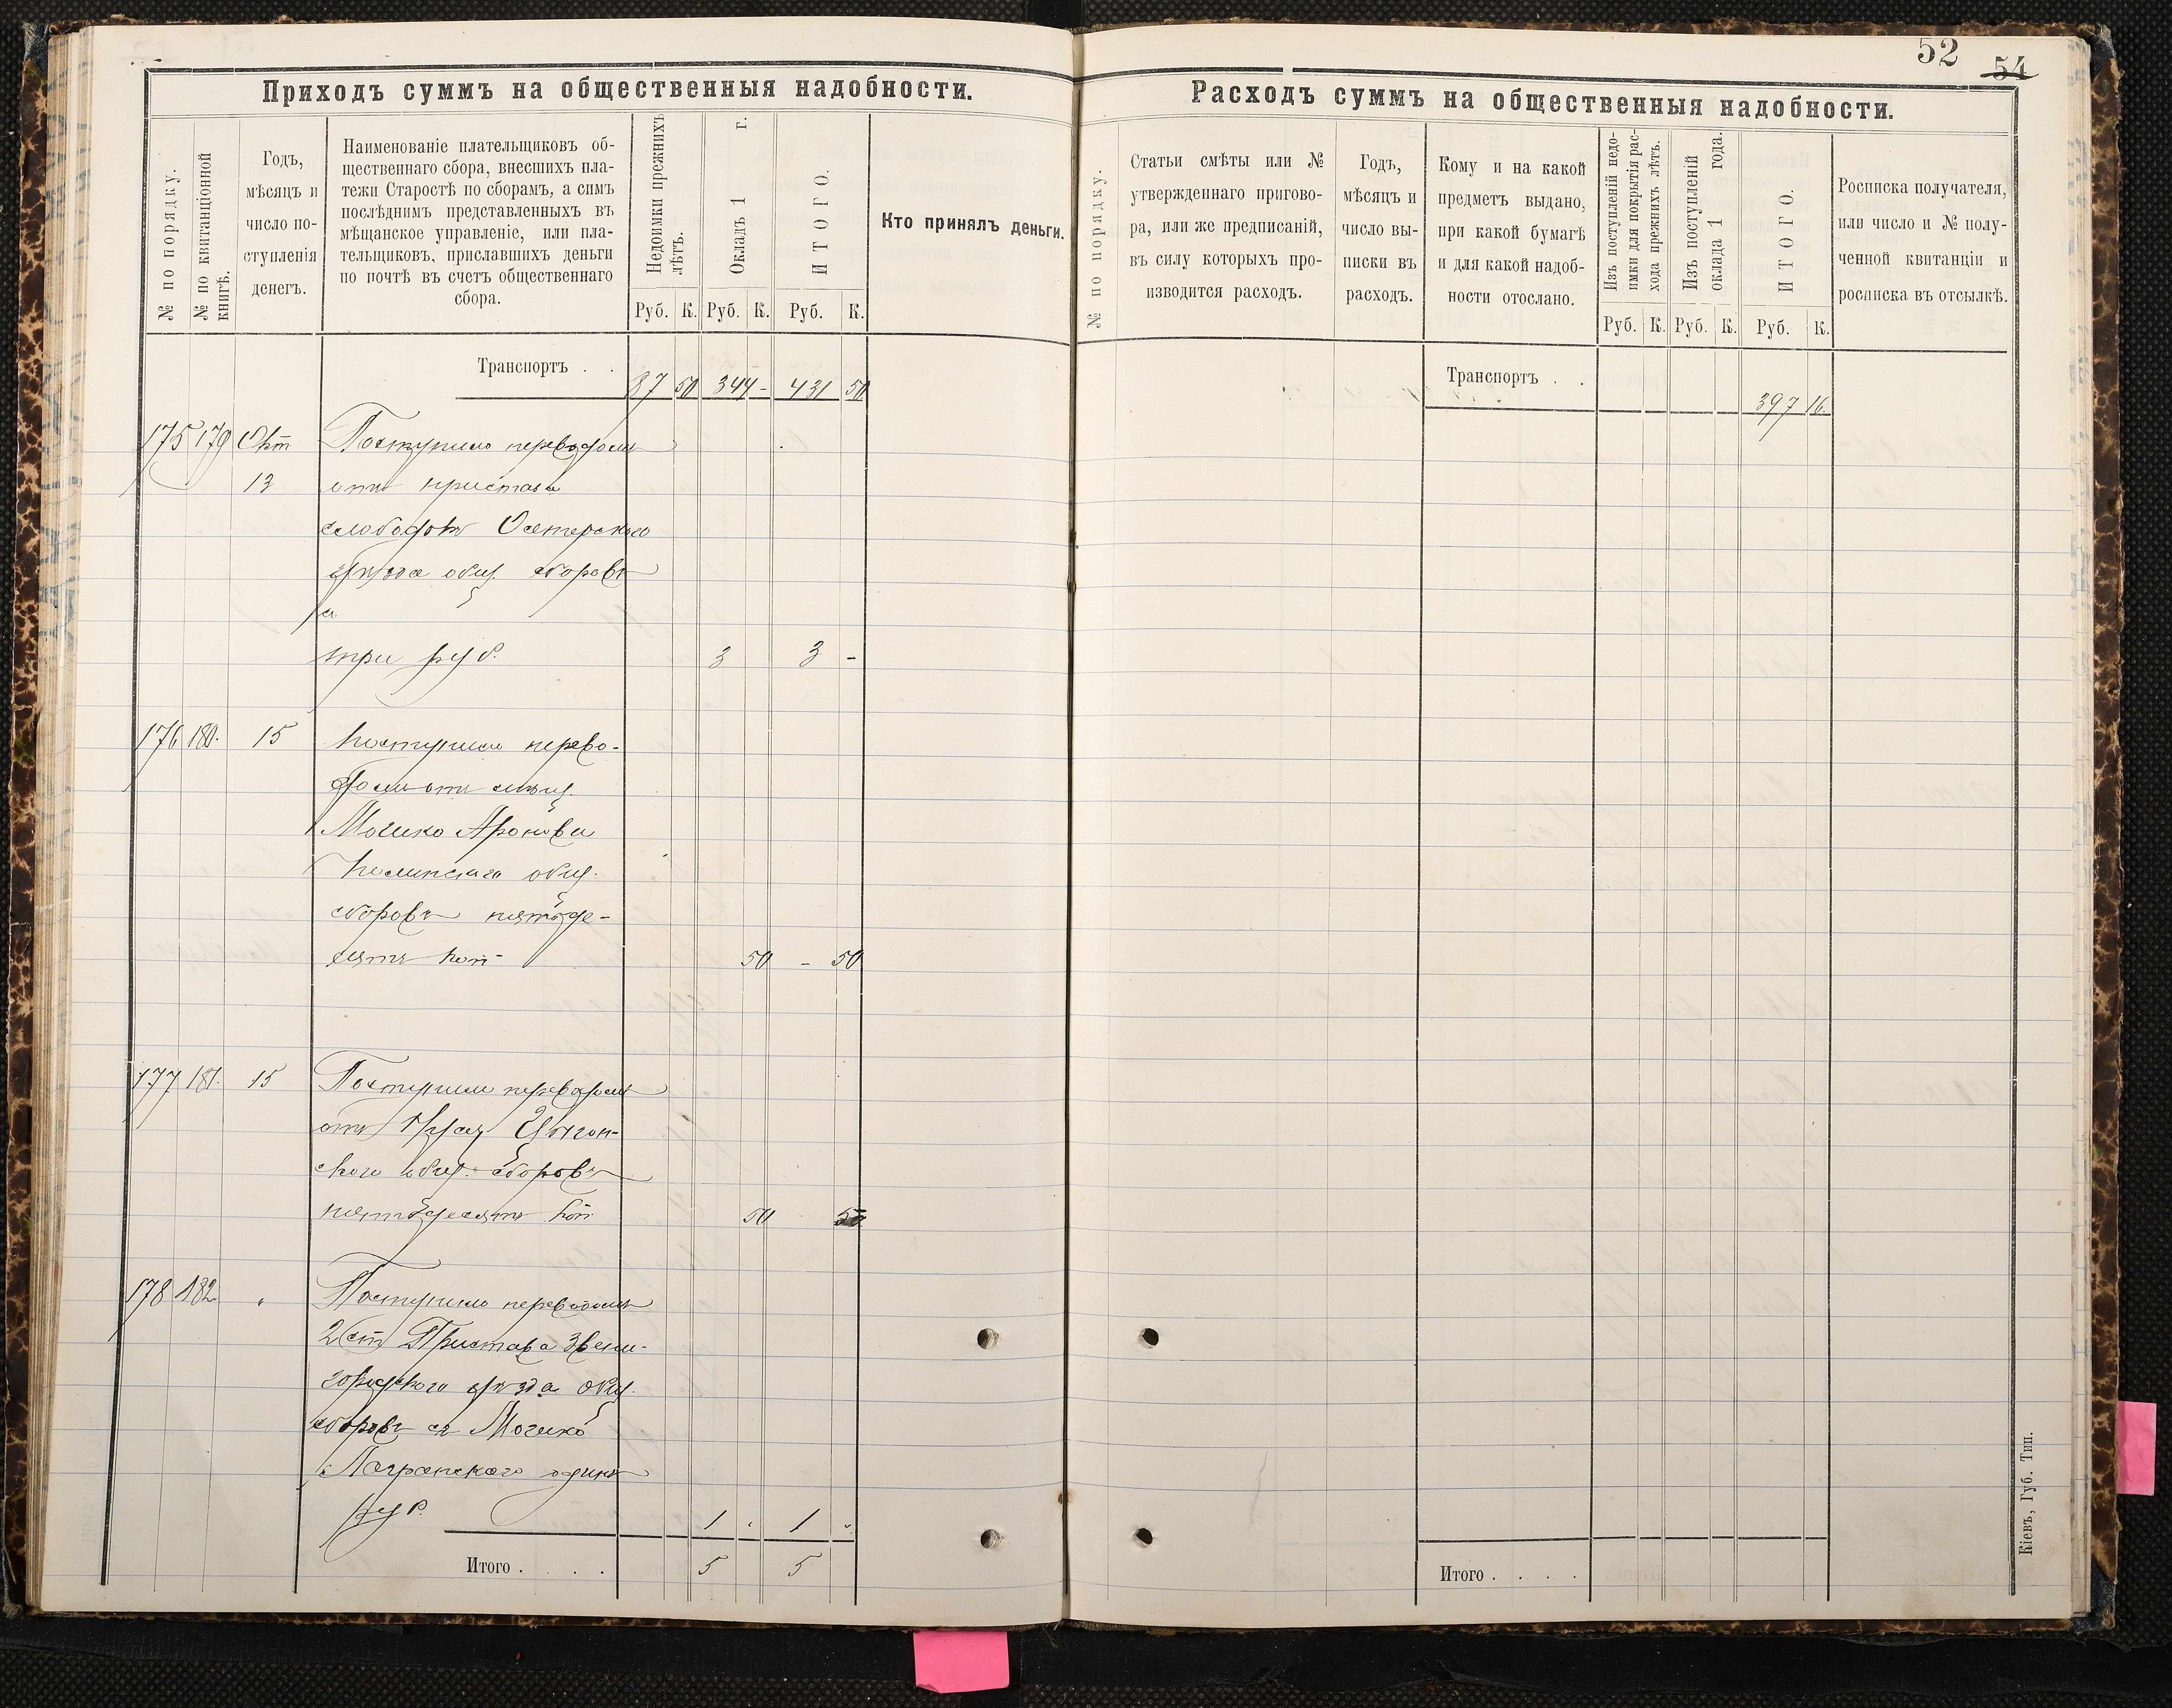 52
54
Приходъ суммъ на общественныя надобности.
№ по порядку.
№ по квитанціонной книгѣ.
Годъ,
мѣсяцъ и
число по-
ступленія
денегъ.
Наименованіе плательщиковъ об-
щественнаго сбора, внесшихъ пла-
тежи Старостѣ по сборамъ, а симъ
послѣднимъ представленныхъ въ
мѣщанское управленіе, или пла-
тельщиковъ, приславшихъ деньги
по почтѣ въ счетъ общественнаго
сбора.
Недоимки прежнихъ
лѣтъ.
Окладъ 1 г.
ИТОГО.
Руб. К. Руб. К. Руб. К.
Кто принялъ деньги.
Транспортъ . .
87 50 344 - 431 50
175 179 Окт Поступило переводомъ
13 отъ пристава
слободокъ Остерского
уѣзда общ. сборовъ
три руб. 3 3 -
176 180. 15 Поступило перево-
домъ отъ мѣщ.
Мошко Аронова
общ.
сборовъ пятьде-
сятъ коп- 50 - 50
177 181. 15 Поступило переводомъ
отъ Цыгон-
ского общ. сборовъ
пятьдесятъ коп 50 50
178 182 " Поступило переводомъ
2 ст Пристава Звени-
городского уѣзда общ.
сборовъ съ Мошко
одинъ
руб. 1 . 1 .
Итого . . . . 5 5
Расходъ суммъ на общественныя надобности.
№ по порядку.
Статьи смѣты или №
утвержденнаго пригово-
ра, или же предписаній,
въ силу которыхъ про-
изводится расходъ.
Годъ,
мѣсяцъ и
число вы-
писки въ
расходъ.
Кому и на какой
предметъ выдано,
при какой бумагѣ
и для какой надоб-
ности отослано.
Изъ поступленій недо-
имки для покрытія рас-
хода прежнихъ лѣтъ.
Изъ поступленій
оклада 1 года.
ИТОГО.
Руб. К. Руб. К. Руб. К.
Росписка получателя,
или число и № полу-
ченной квитанціи и
росписка въ отсылкѣ.
Транспортъ . .
397 16.
Итого . . . .
Кіевъ, Губ. Тип.